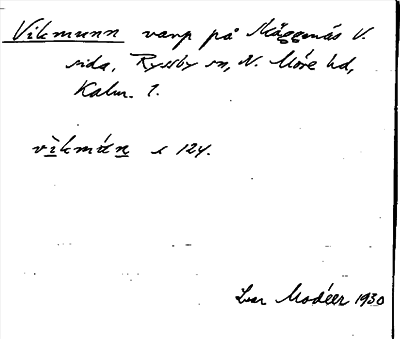 Vikmunn varp på Måggenäs V.
sida, Ryssby sn, N. Möre hd,
Kalm. l.
vìkmán s 124.
Ivar Modéer 1930